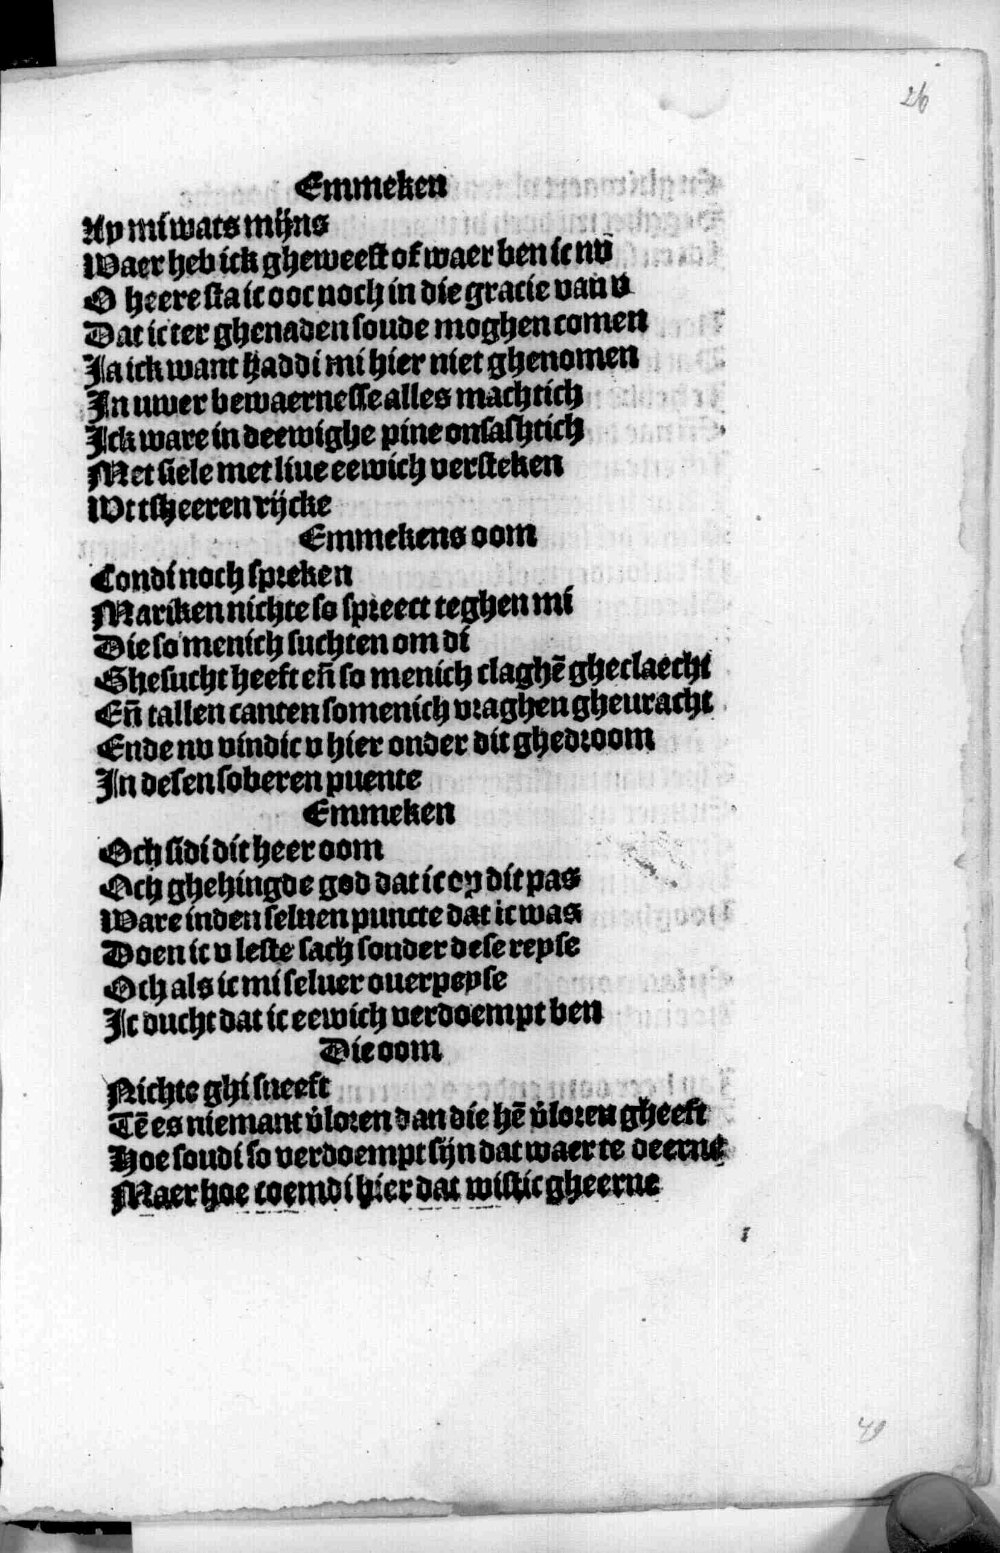 26
Emmeken
Ay mi wats mijns
Waer heb ick gheweest of waer ben ic nū
O heere sta ic ooc noch in die gracie van v
Dat ic ter ghenaden soude moghen comen
Ja ick want haddi mi hier niet ghenomen
In uwer bewaernesse alles machtich
Ick ware in deewighe pine onsashtich
Met siele met liue eewich versteken
Wt tsheeren rijcke
Emmekens oom
Condi noch spreken
Mariken nichte so spreect teghen mi
Die so menich suchten om di
Ghesucht heeft en̄ so menich claghē gheclaecht
En̄ tallen canten so menich vraghen gheuracht
Ende nv vindic v hier onder dit ghedroom
In desen soberen puente
Emmeken
Och sidi dit heer oom
Och ghehingde god dat ic op dit pas
Ware inden seluen puncte dat ic was
Doen ic v leste sach sonder dese reyse
Och als ic mi seluer ouerpeyse
Ic ducht dat ic eewich verdoempt ben
Die oom
Nichte ghi sneeft
Tē es niemant v̄loren dan die hē v̄loren gheeft
Hoe soudi so verdoempt sijn dat waer te deerne
Maer hoe coemdi hier dat wistic gheerne
49